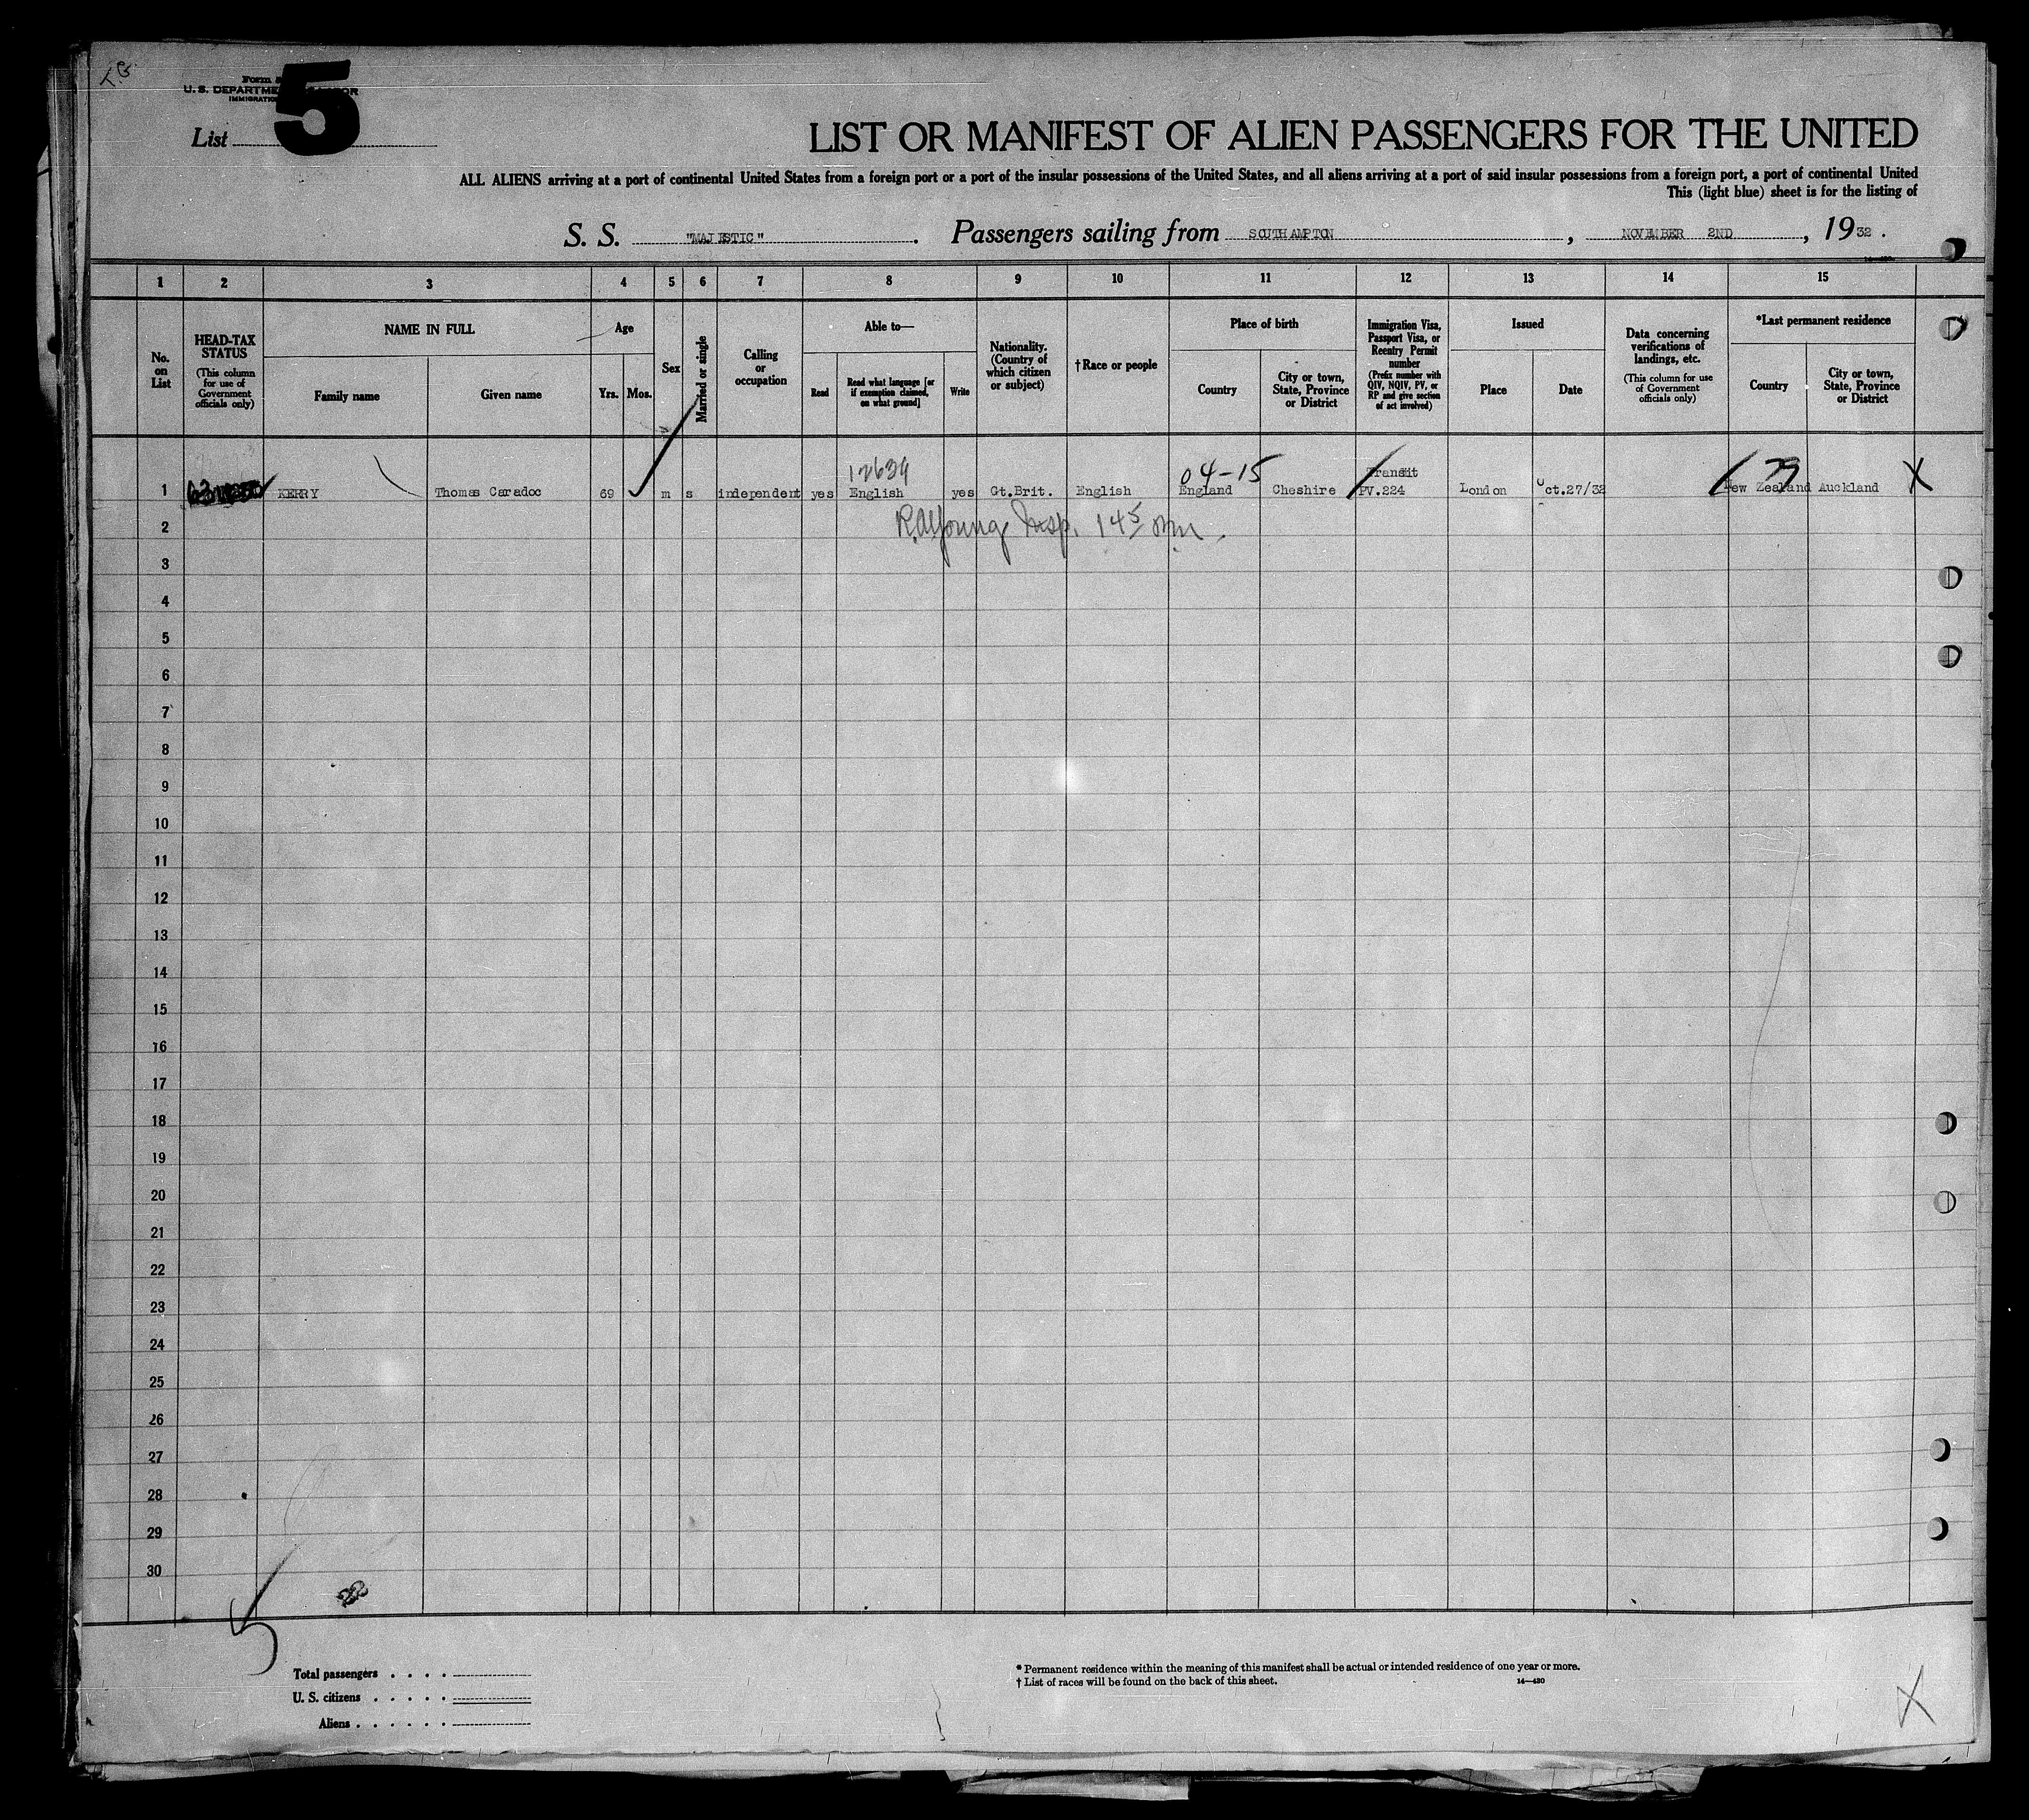 Form
U. S. DEPARTME
IMMIGRATION
List 5
LIST OR MANIFEST OF ALIEN PASSENGERS FOR THE UNITED
ALL ALIENS arriving at a port of continental United States from a foreign port or a port of the insular possessions of the United States, and all aliens arriving at a port of said insular possessions from a foreign port, a port of continental United
This (light blue) sheet is for the listing of
S. S. "MAJESTIC". Passengers sailing from SOUTHAMPTON, NOVEMBER 2ND, 1932.
1 2 3 4 5 6 7 8 9 10 11 12 13 14 15
No. on List
HEAD-TAX STATUS (This column for use of Government officials only)
NAME IN FULL
Family name Given name
Age
Yrs. Mos.
Sex
Married or single
Calling or occupation
Able to—
Read Read what language [or if exemption claimed, on what ground] Write
Nationality. (Country of which citizen or subject)
†Race or people
Place of birth
Country City or town, State, Province or District
Immigration Visa, Passport Visa, or Reentry Permit number (Prefix number with QIV, NQIV, PV, or RP and give section of act involved)
Issued
Place Date
Data concerning verifications of landings, etc. (This column for use of Government officials only)
*Last permanent residence
Country City or town, State, Province or District
12639 04-15 Transit 79
1 KERRY Thomas Caradoc 69 m s independent yes English yes Gt.Brit. English England Cheshire PV.224 London Oct.27/32 New Zealand Auckland X
2 R.A.Young Insp.
3
4
5
6
7
8
9
10
11
12
13
14
15
16
17
18
19
20
21
22
23
24
25
26
27
28
29
30
5
Total passengers . . . .
U. S. citizens . . . . .
Aliens . . . . . .
* Permanent residence within the meaning of this manifest shall be actual or intended residence of one year or more.
† List of races will be found on the back of this sheet.
14—430
X